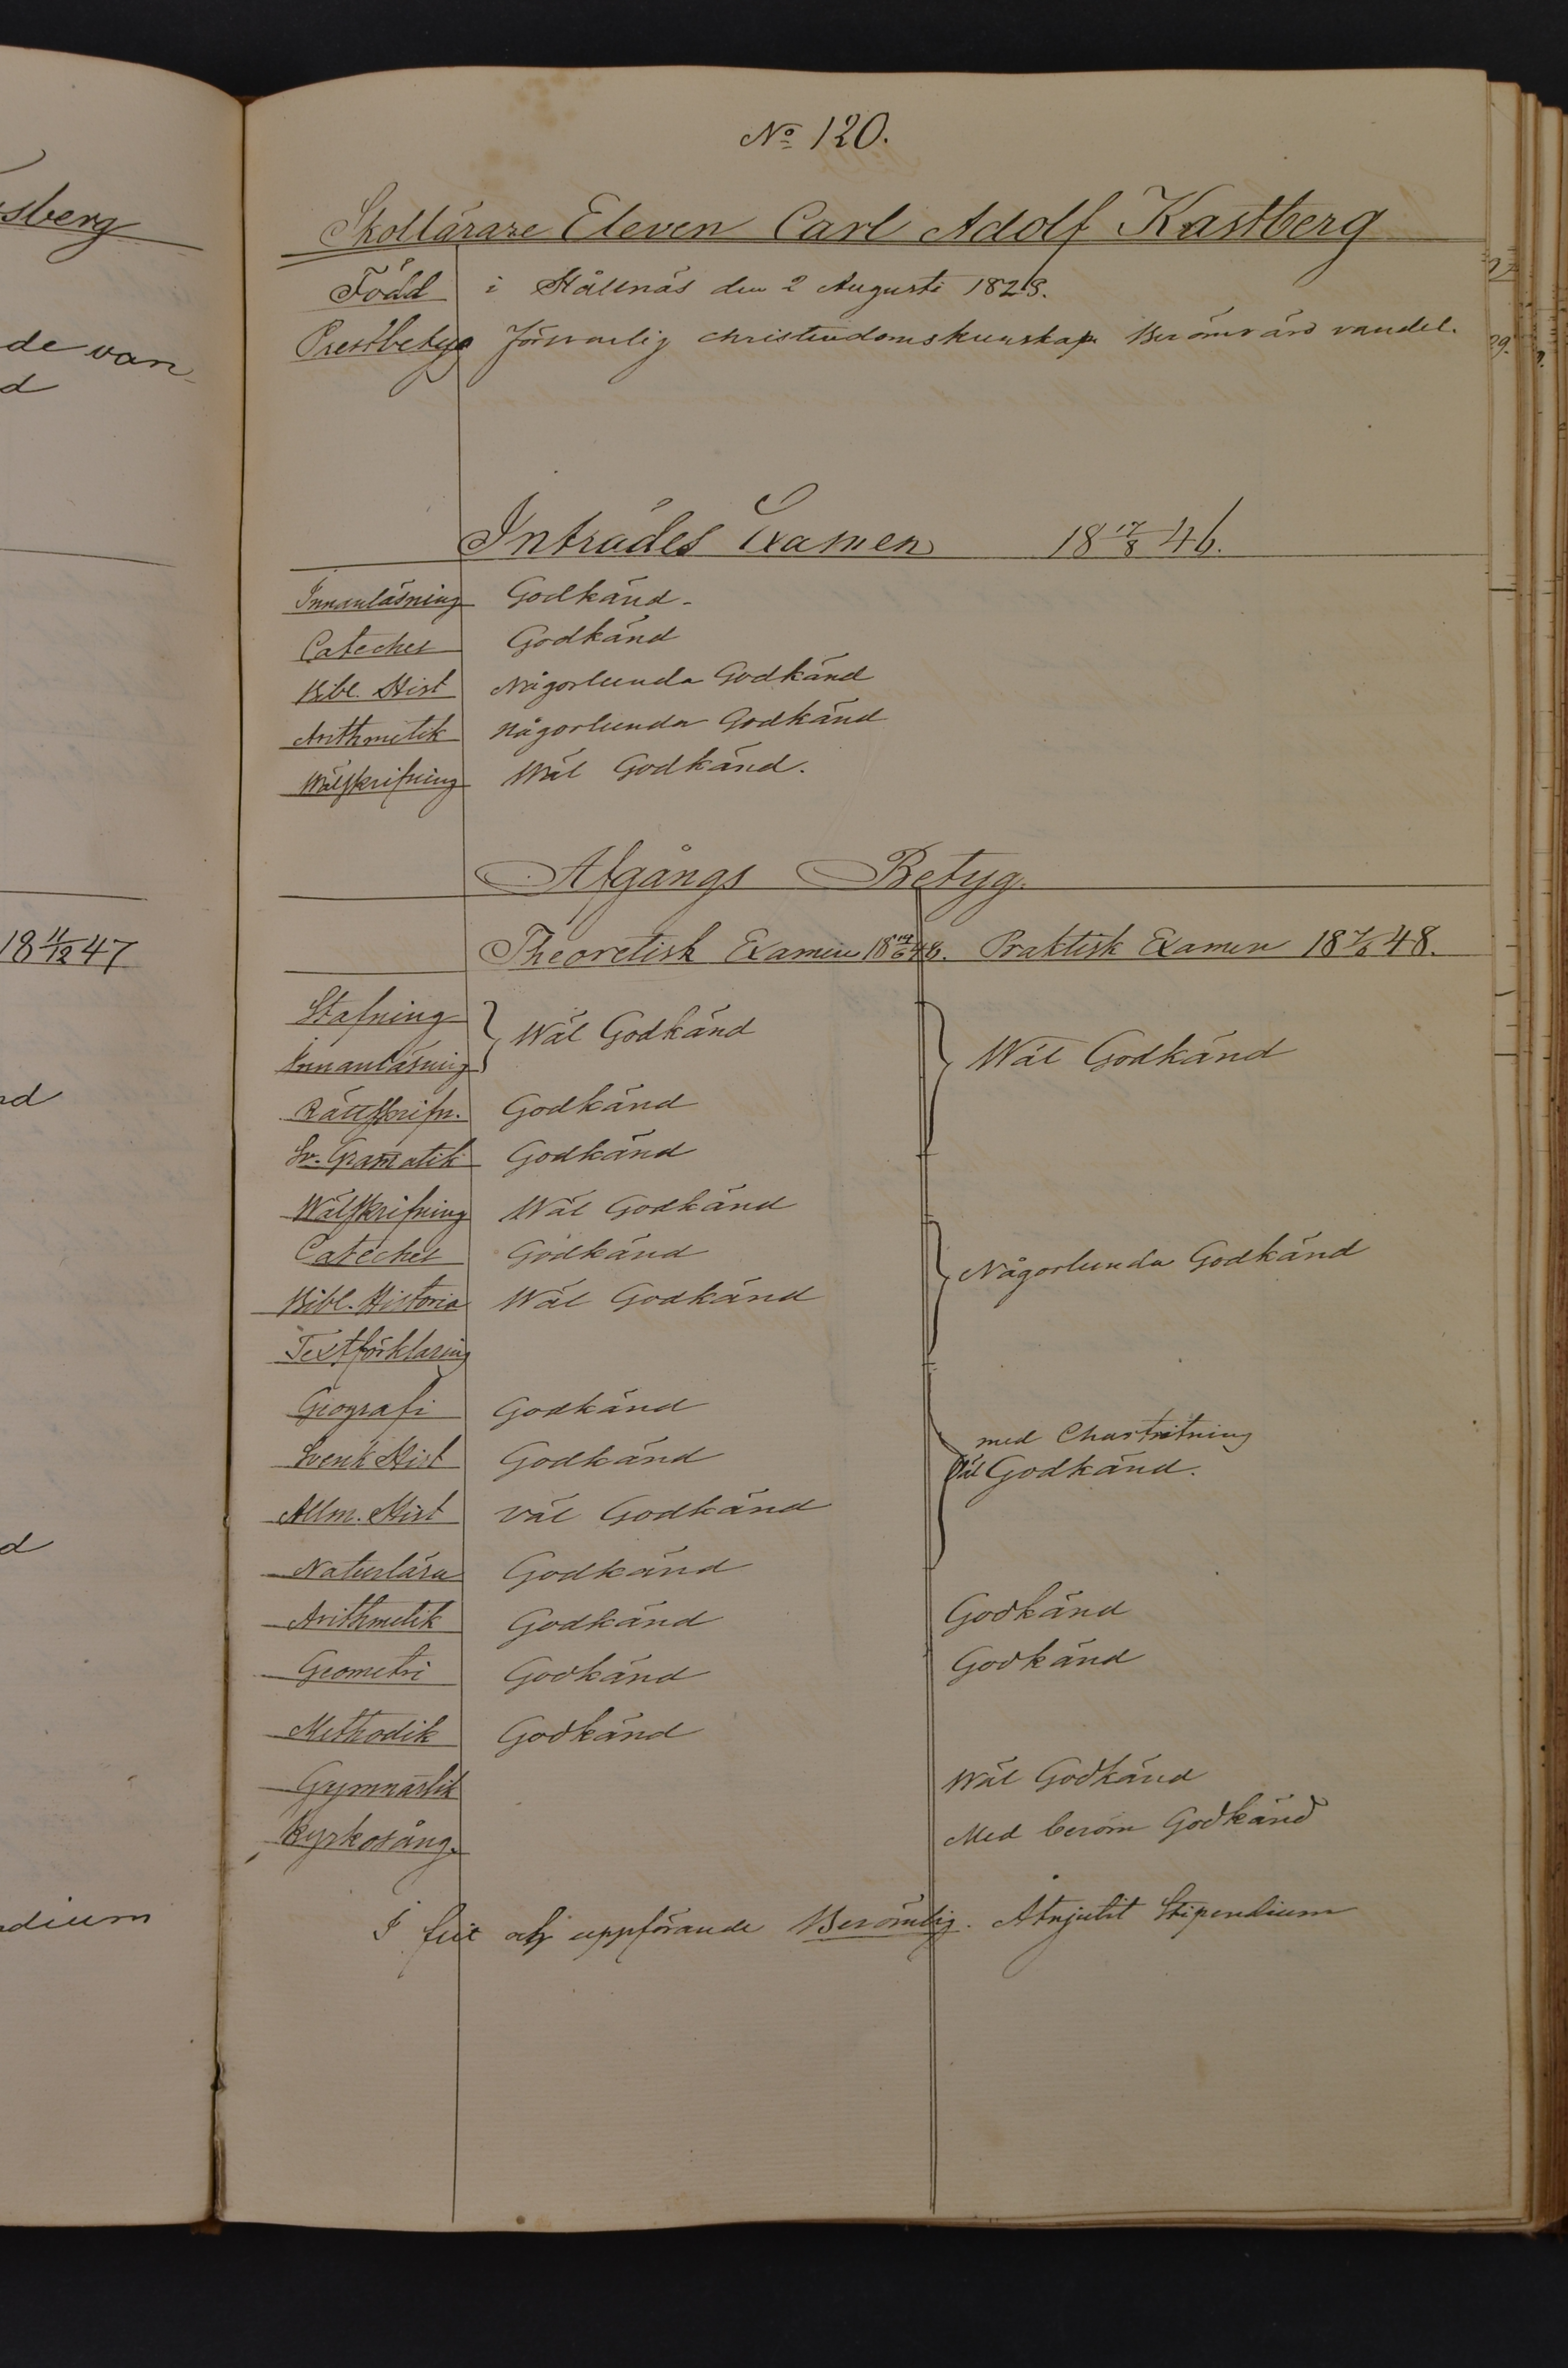 sberg
de van
d
18 11/12 47
nd
d
dium
No 120.
Skollärare Eleven Carl Adolf Kastberg
Född i Hållnäs den 2 Augusti 1828.
Prestbetyg Försvarlig christendomskunskap Berömvärd vandel.
Inträdes Examen 18 17/8 46.
Innanläsning Godkänd.
Cateches Godkänd
Bibl. Hist Någorlunda Godkänd
Arithmetik Någorlunda Godkänd
Wälskrifning Wäl Godkänd.
Afgångs Betyg.
Theoretisk Examen 18 14/6 48. Praktisk Examen 18 48.
Stafning
Innanläsning Wäl Godkänd Wäl Godkänd
Rättskrifn. Godkänd
Sv. Gramatik Godkänd
Wälskrifning Wäl Godkänd
Cateches Godkänd Någorlunda Godkänd
Bibl. Historia Wäl Godkänd
Textförklaring
Geografi Godkänd med Chartritning
Svensk Hist Godkänd Väl Godkänd.
Allm. Hist Väl Godkänd
Naturlära Godkänd
Arithmetik Godkänd Godkänd
Geometri Godkänd Godkänd
Methodik Godkänd
Gymnastik Wäl Godkänd
Kyrkosång. Med beröm Godkänd
I flit och uppförande Berömlig. Åtnjutit Stipendium